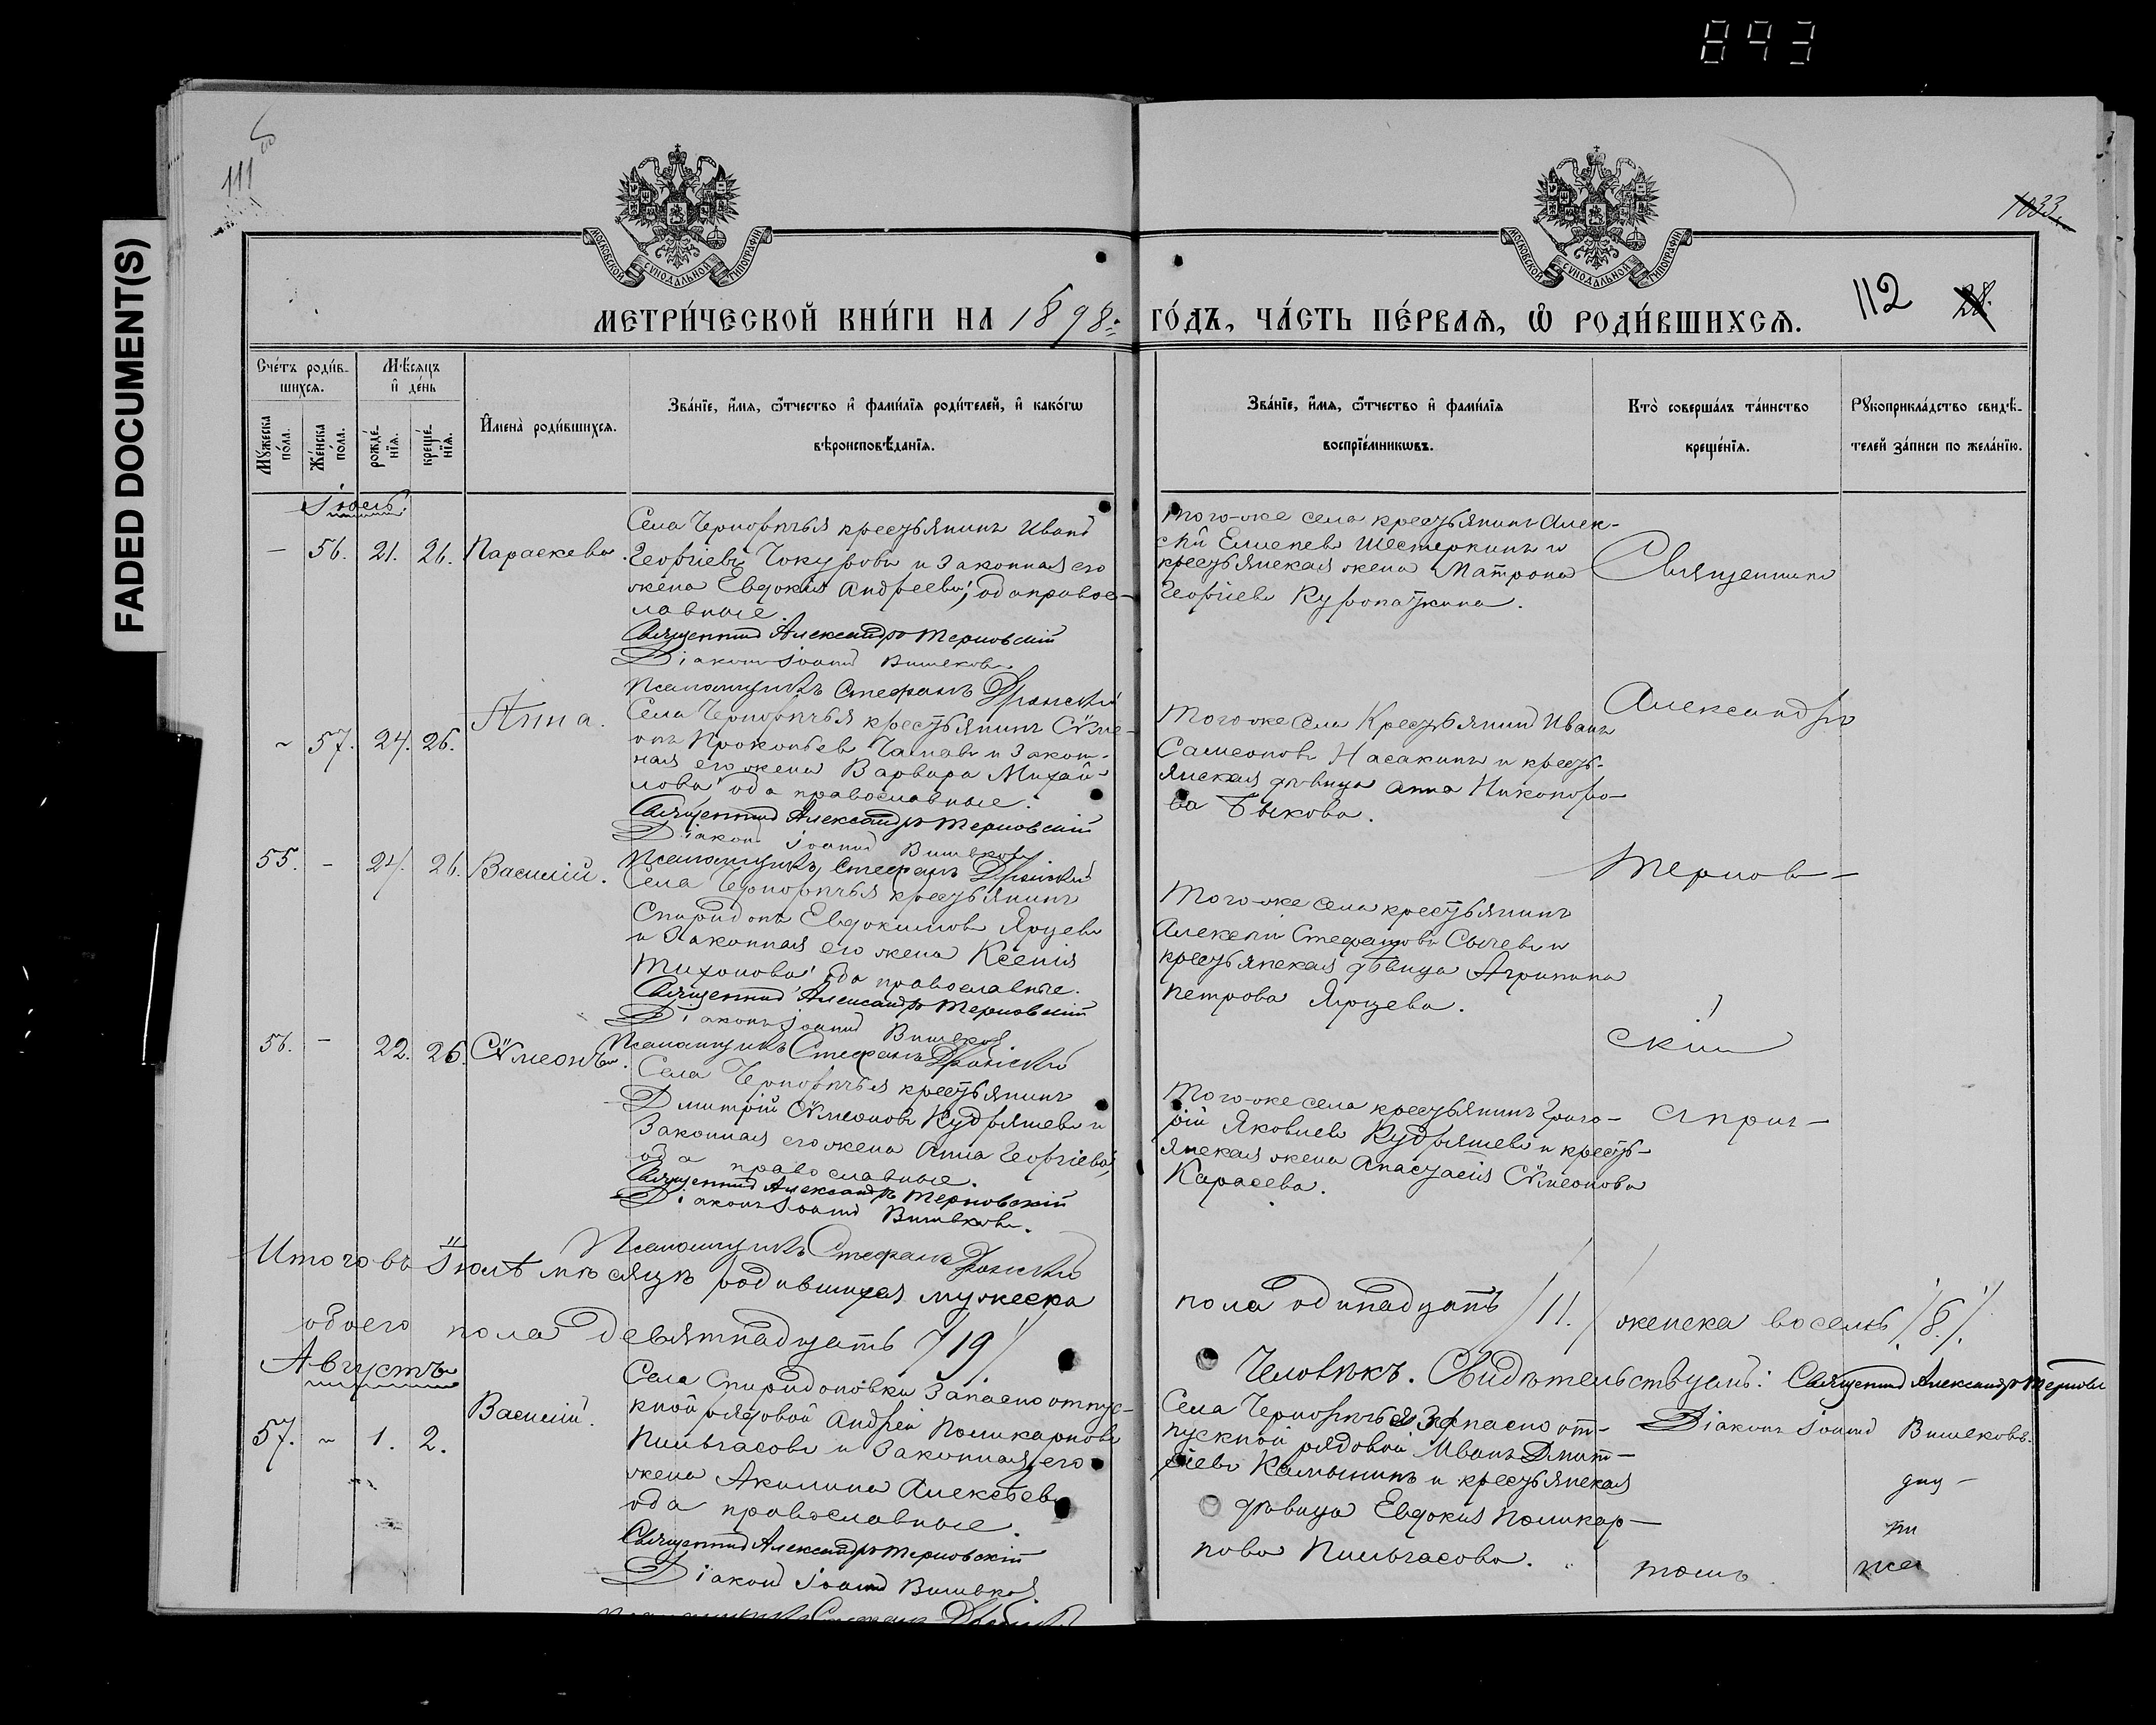 893
FADED DOCUMENT(S)
111
1033.
МОСКОВСКОЙ СѴНОДАЛЬНОЙ ТИПОГРАФІИ
МОСКОВСКОЙ СѴНОДАЛЬНОЙ ТИПОГРАФІИ
МЕТРИ́ЧЕСКОЙ КНИ́ГИ НА 1898
ГО́ДЪ, ЧА́СТЬ ПЕ́РВАЯ, Ѡ҆ РОДИ́ВШИХСЯ.
112
28.
Сче́тъ роди́в-
шихся.
Мꙋ́жеска по́ла.
Же́нска по́ла.
Мѣ́сяцъ и҆ де́нь
рожде́-нїя.
креще́-нїя.
И҆мена̀ роди́вшихся.
Зва́нїе, и҆́мя, ѻ҆́тчество и҆ фами́лїя роди́телей, и҆ како́гѡ
вѣроисповѣ́данїя.
Зва́нїе, и҆́мя, ѻ҆́тчество и҆ фами́лїя
воспрїе́мникѡвъ.
Кто̀ соверша́лъ та́инство
креще́нїя.
Рꙋкоприкла́дство свидѣ́-
телей за́писи по жела́нїю.
Іюль.
— 56. 21. 26. Параскева.
Села Чернорѣчья крестьянинъ Иванъ
Георгіевъ Чокуровъ и законная его
жена Евдокія Андреева; оба правос-
лавные.
Священникъ Александръ Терновскій
Діаконъ Іоаннъ Вишвковъ.
Псаломщикъ Стефанъ
Того-же села крестьянинъ Алек-
сѣй Шестеркинъ и
крестьянская жена Матрона
Георгіева Куропаткина.
Священникъ
~ 57. 24. 26. Анна.
Села Чернорѣчья крестьянинъ Сѵме-
онъ Прокопьевъ и закон-
ная его жена Варвара Михай-
лова оба православные.
Священникъ Александръ Терновскій
Діаконъ Іоаннъ Вишвковъ
Псаломщикъ Стефанъ
Того-же села крестьянинъ Иванъ
Самсоновъ Насакинъ и кресть-
янская дѣвица Анна Никоноро-
ва Быкова.
Александръ
55. — 24. 26. Василій.
Села Чернорѣчья крестьянинъ
Спиридонъ Евдокимовъ Ярцевъ
и законная его жена Ксенія
Тихонова оба православные.
Священникъ Александръ Терновскій
Діаконъ Іоаннъ Вишвковъ
Псаломщикъ Стефанъ
Того-же села крестьянинъ
Алексѣй Стефановъ Сычевъ и
крестьянская дѣвица Агрипина
Петрова Ярцева.
Тернов-
скій
56. — 22. 26. Сѵмеонъ.
Села Чернорѣчья крестьянинъ
Димитрій Сѵмеоновъ Кудряшевъ и
законная его жена Анна Георгіева,
оба православные.
Священникъ Александръ Терновскій
Діаконъ Іоаннъ Вишвковъ.
Псаломщикъ Стефанъ
Того-же села крестьянинъ Григо-
рій Яковлевъ Кудряшевъ и кресть-
янская жена Анастасія Сѵмеонова
Карасева.
с прич-
Итого въ Іюлѣ мѣсяцѣ родившихся мужеска
пола одинадцать /11./ женска восемь /8./.
обоего пола девятнадцать /19/
Человѣкъ. Свидѣтельствуемъ: Священникъ Александръ Терновск
Діаконъ Іоаннъ Вишвковъ.
Августъ
57. ~ 1. 2. Василій.
Села Спиридоновки Запасно отпус-
кной рядовой Андрей Поликарповъ
Пильгасовъ и законная его
жена Акилина Алексѣева
оба православные.
Священникъ Александръ Терновскій
Діаконъ Іоаннъ Вишвковъ
Села Чернорѣчья Запасно от-
пускной рядовой Иванъ Дмит-
ріевъ Камынинъ и крестьянская
дѣвица Евдокія Поликар-
пова Пильгасова.
томъ